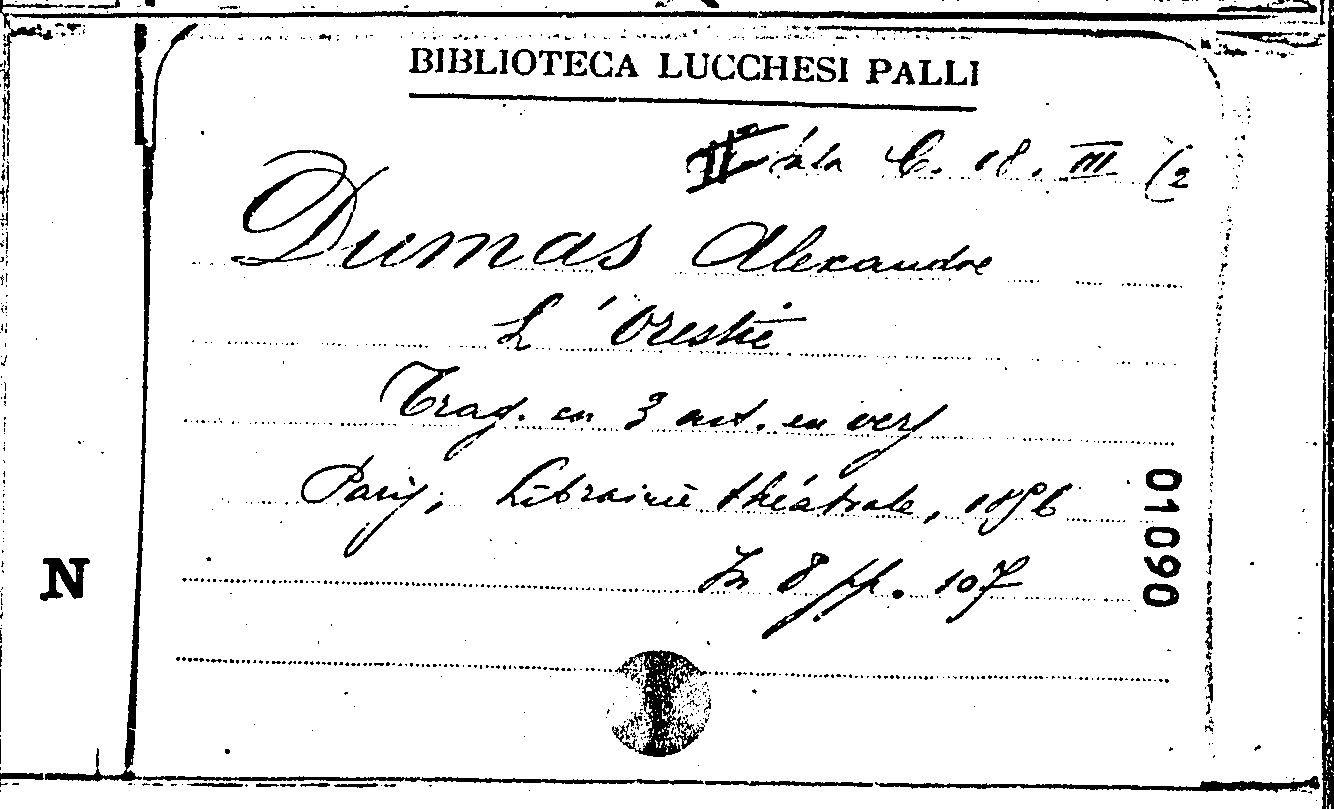 BIBLIOTECA LUCCHESI PALLI
Sala C. 18. III (2
Dumas Alexandre
L'Orestie
Trag. en 3 act. en vers
Paris, Librairie théâtrale, 1856
In 8 pp. 107
01090
N